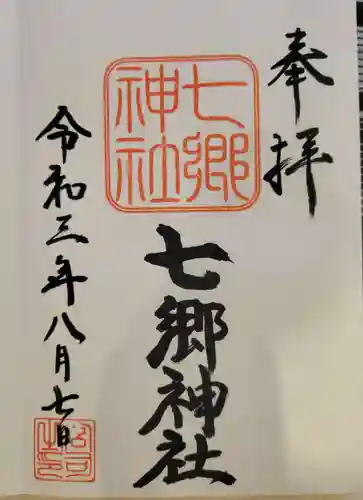 奉拝
七郷神社
七郷神社
令和三年八月七日